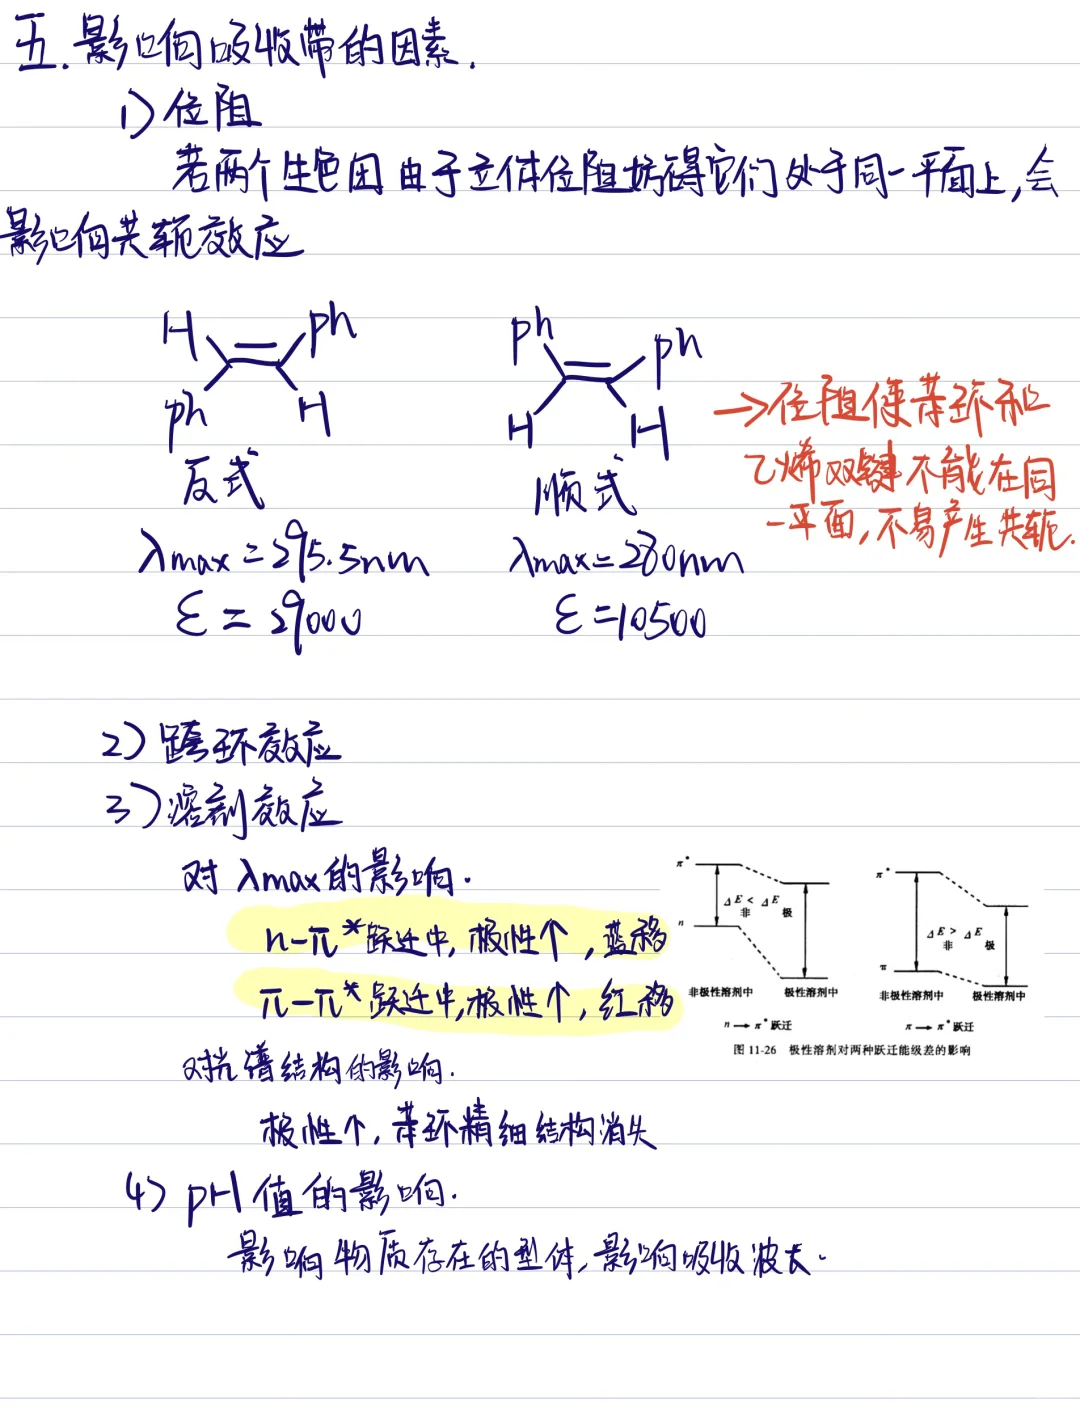 五. 影响吸收带的因素.
1) 位阻
若两个生色团由于立体位阻妨碍它们处于同一平面上,会
影响共轭效应
H ph ph ph
ph H H H
反式 顺式
λmax=295.5nm λmax=280nm
ε=29000 ε=10500
→位阻使苯环和
乙烯双键不能在同
一平面,不易产生共轭.
2) 跨环效应
3) 溶剂效应
对λmax的影响.
n-π*跃迁中,极性个,蓝移
π-π*跃迁中,极性个,红移
π* ΔE < ΔE
非 极
n
非极性溶剂中 极性溶剂中
n → π* 跃迁
π* ΔE > ΔE
非 极
π
非极性溶剂中 极性溶剂中
π → π* 跃迁
图 11-26 极性溶剂对两种跃迁能级差的影响
对光谱结构的影响.
极性个,苯环精细结构消失
4) pH值的影响.
影响物质存在的型体,影响吸收波长.